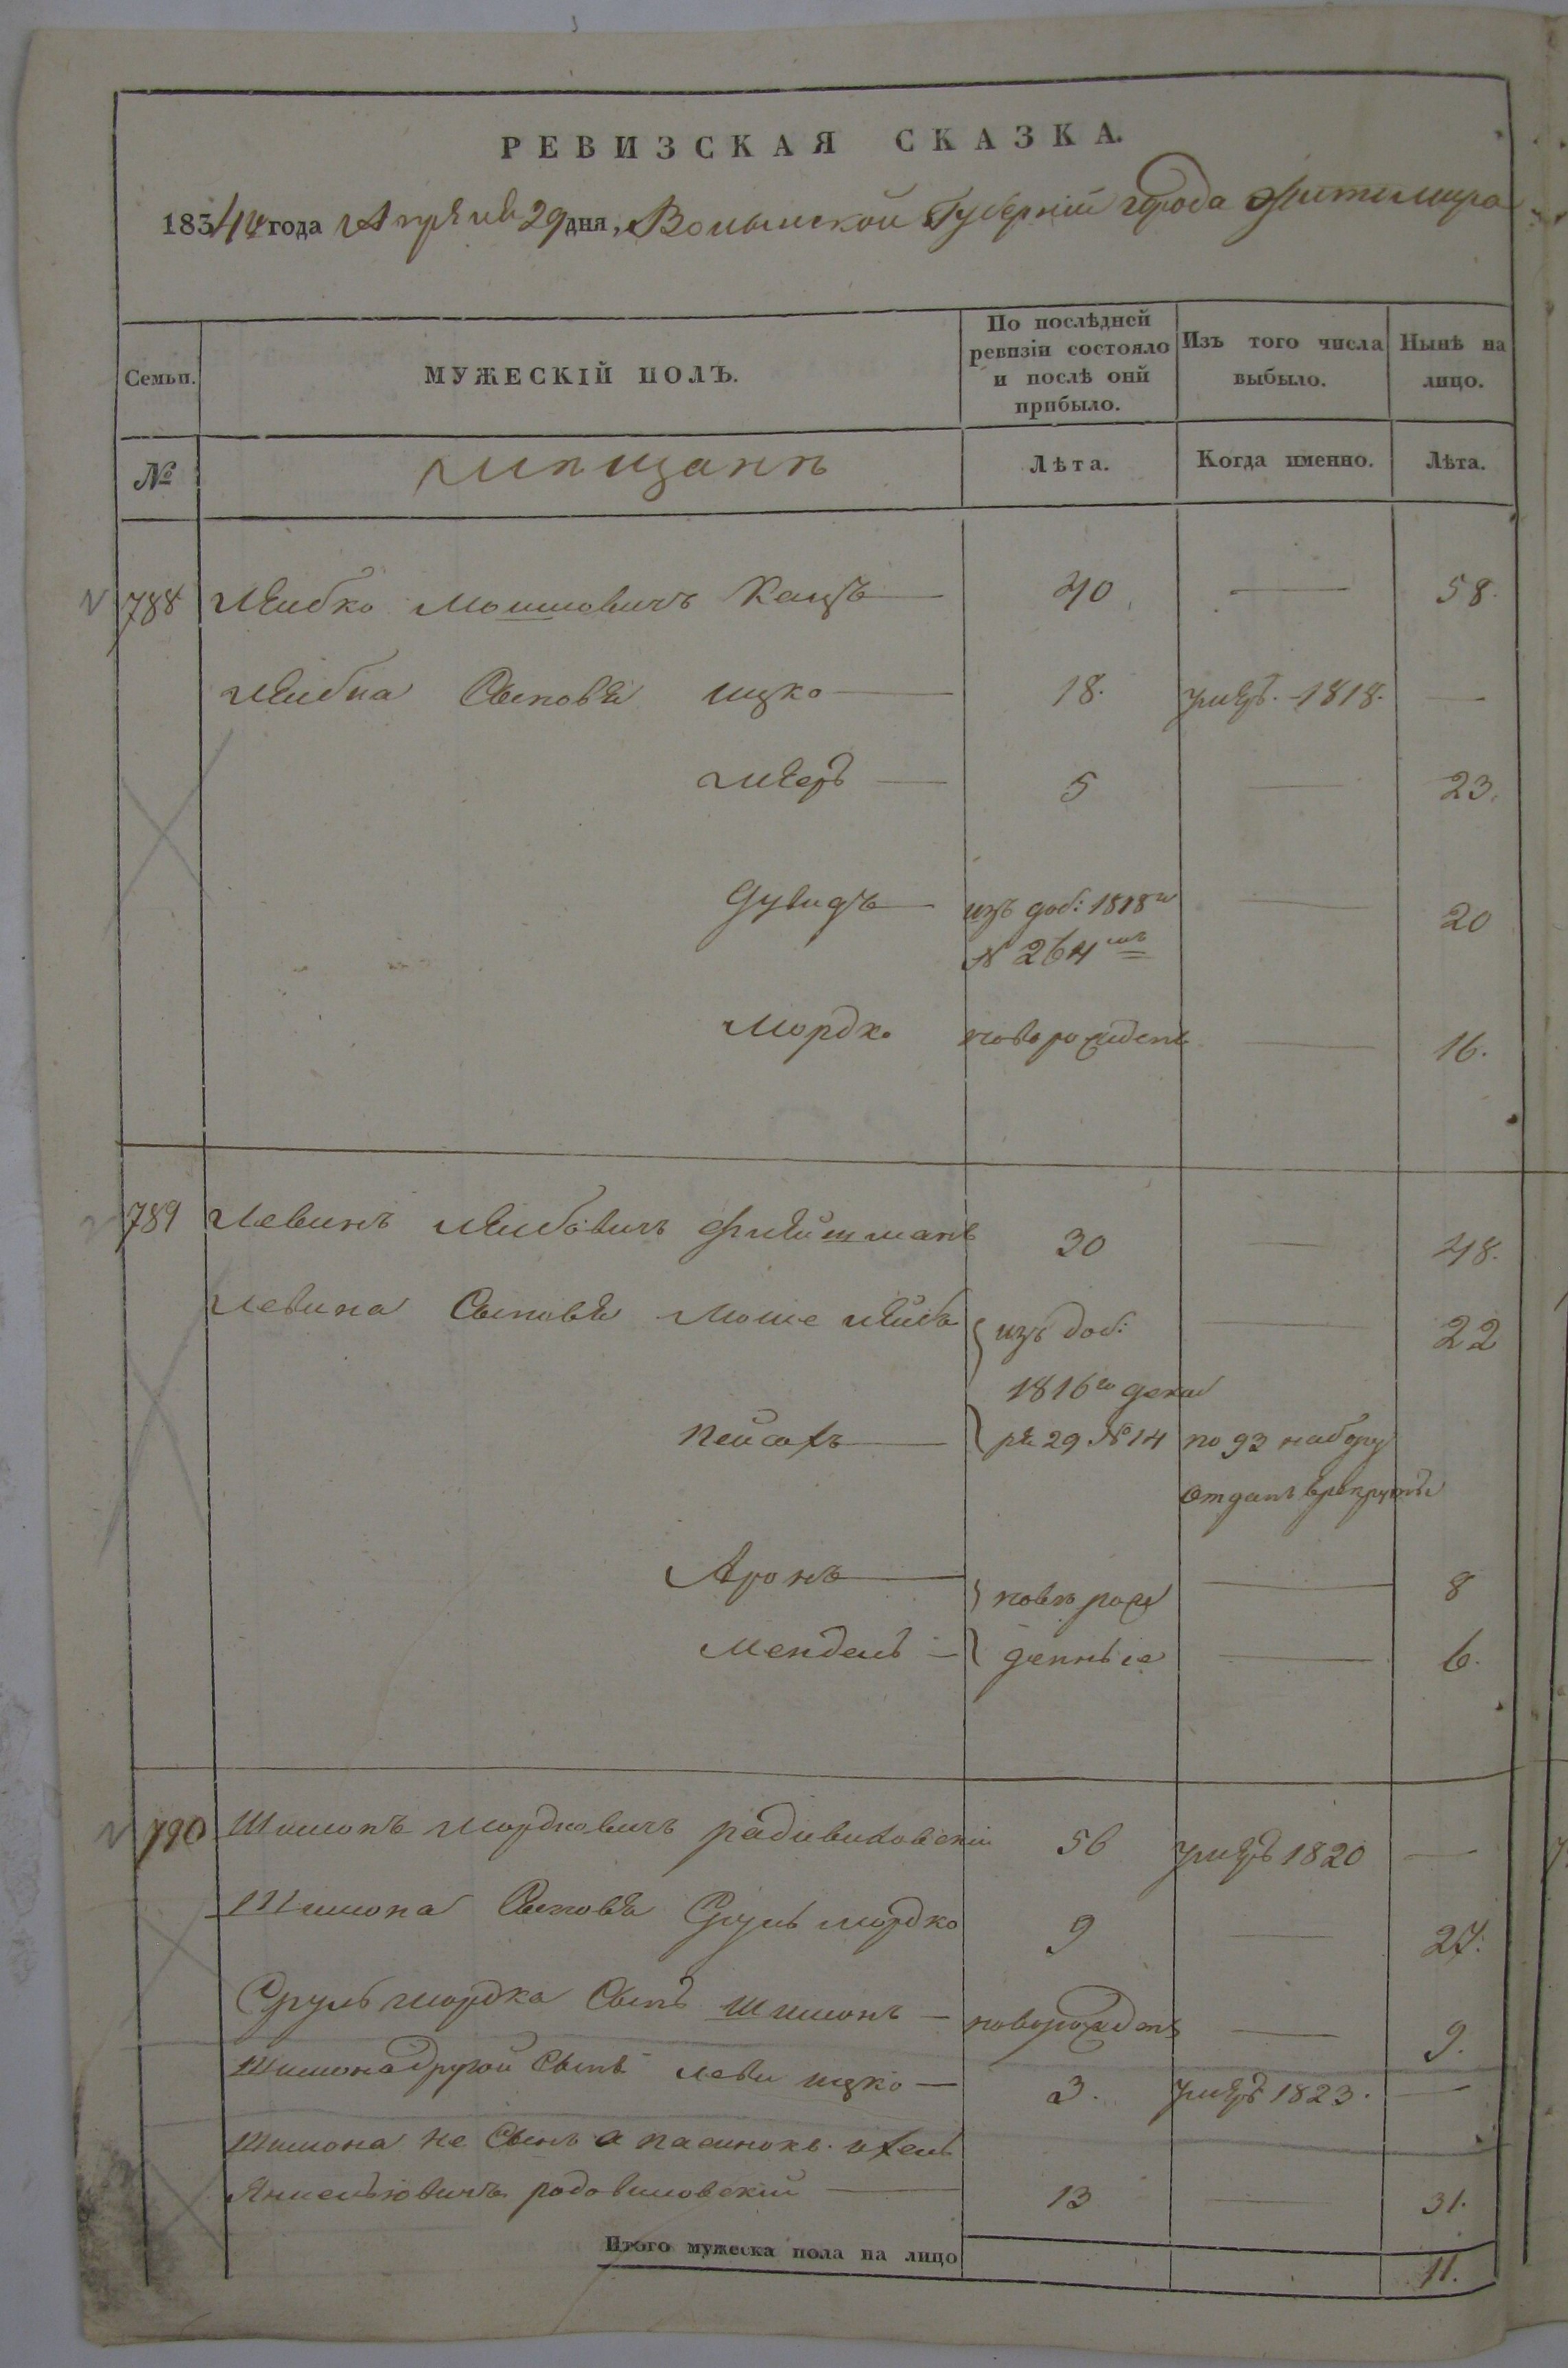 РЕВИЗСКАЯ СКАЗКА.
1834 года Апреля 29 дня, Волынской Губерніи города Житомира
Семьи. МУЖЕСКІЙ ПОЛЪ. По послѣдней ревизіи состояло и послѣ онй прибыло. Изъ того числа выбыло. Нынѣ на лицо.
№ мещане Лѣта. Когда именно. Лѣта.
788 Лейбко Мошковичъ Кацъ 40 — 58.
Лейбка Сыновья ицко 18. умеръ. 1818. —
меръ 5 — 23.
Дувидъ изъ доб: 1818го — 20
№ 264мъ
Мордко новорожденъ — 16.
789 Левинъ Лейбовичъ Флейшманъ 30 — 48.
Левина Сыновья Моше лейба изъ доб: — 22
1816го декаб
Пейсахъ ря 29 № 14 по 93 набору
отданъ врекруты
Аронъ новорож — 8
Мендель денные — 6.
790 Шимонъ мордковичъ радивиловскій 56 умеръ 1820 —
Шимона Сыновья Сруль мордко 9 — 27.
Сруль мордка Сынъ Шимонъ — новорожденъ — 9.
Шимона другой Сынъ леви ицко — 3. умеръ 1823. —
Шимона не Сынъ а пасинокъ ихель
Янкельовичъ радовиловскій — 13 — 31.
Итого мужеска пола на лицо 11.